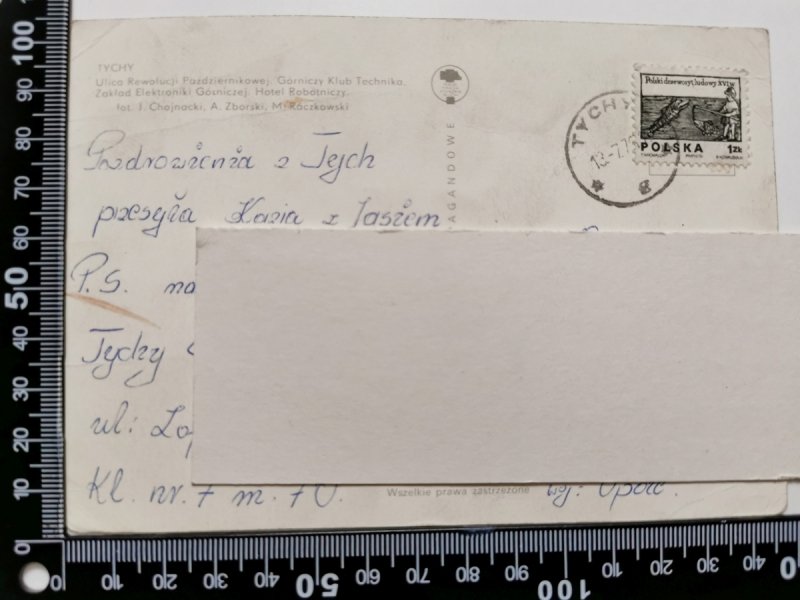 TYCHY
Ulica Rewolucji Październikowej. Górniczy Klub Technika.
Zakład Elektroniki Górniczej. Hotel Robotniczy.
fot. J. Chojnacki, A. Zborski, M. Raczkowski
Pozdrowienia z Tych
przesyła Kazia z Jasiem
P.S.
Tychy
ul:
Kl. nr. 7 m. 70.
AGANDOWE
Wszelkie prawa zastrzeżone
woj: Opole.
TYCHY
Polski drzeworyt ludowy XVI w.
POLSKA 1 ZŁ
100
90
80
70
60
50
40
30
20
10
0
0 10 20 30 40 50 60 70 80 90 100 10 20 30 40